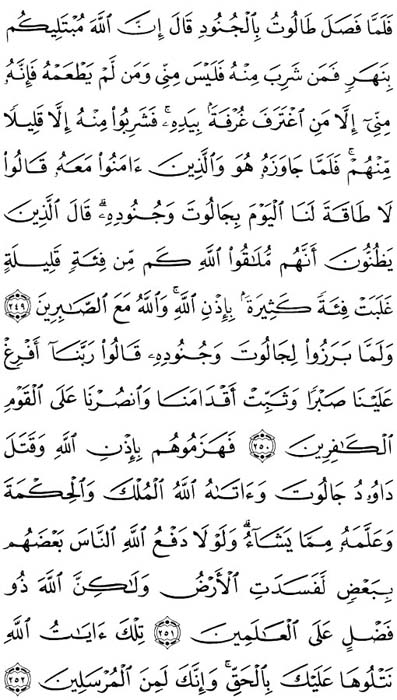 فَلَمَّا فَصَلَ طَالُوتُ بِٱلْجُنُودِ قَالَ إِنَّ ٱللَّهَ مُبْتَلِيكُم
بِنَهَرٍ فَمَن شَرِبَ مِنْهُ فَلَيْسَ مِنِّى وَمَن لَّمْ يَطْعَمْهُ فَإِنَّهُۥ
مِنِّىٓ إِلَّا مَنِ ٱغْتَرَفَ غُرْفَةًۢ بِيَدِهِۦۚ فَشَرِبُوا۟ مِنْهُ إِلَّا قَلِيلًا
مِّنْهُمْۚ فَلَمَّا جَاوَزَهُۥ هُوَ وَٱلَّذِينَ ءَامَنُوا۟ مَعَهُۥ قَالُوا۟
لَا طَاقَةَ لَنَا ٱلْيَوْمَ بِجَالُوتَ وَجُنُودِهِۦۚ قَالَ ٱلَّذِينَ
يَظُنُّونَ أَنَّهُم مُّلَٰقُوا۟ ٱللَّهِ كَم مِّن فِئَةٍ قَلِيلَةٍ
غَلَبَتْ فِئَةً كَثِيرَةًۢ بِإِذْنِ ٱللَّهِۗ وَٱللَّهُ مَعَ ٱلصَّٰبِرِينَ ٢٤٩
وَلَمَّا بَرَزُوا۟ لِجَالُوتَ وَجُنُودِهِۦ قَالُوا۟ رَبَّنَآ أَفْرِغْ
عَلَيْنَا صَبْرًا وَثَبِّتْ أَقْدَامَنَا وَٱنصُرْنَا عَلَى ٱلْقَوْمِ
ٱلْكَٰفِرِينَ ٢٥٠ فَهَزَمُوهُم بِإِذْنِ ٱللَّهِ وَقَتَلَ
دَاوُۥدُ جَالُوتَ وَءَاتَىٰهُ ٱللَّهُ ٱلْمُلْكَ وَٱلْحِكْمَةَ
وَعَلَّمَهُۥ مِمَّا يَشَآءُۗ وَلَوْلَا دَفْعُ ٱللَّهِ ٱلنَّاسَ بَعْضَهُم
بِبَعْضٍ لَّفَسَدَتِ ٱلْأَرْضُ وَلَٰكِنَّ ٱللَّهَ ذُو
فَضْلٍ عَلَى ٱلْعَٰلَمِينَ ٢٥١ تِلْكَ ءَايَٰتُ ٱللَّهِ
نَتْلُوهَا عَلَيْكَ بِٱلْحَقِّۚ وَإِنَّكَ لَمِنَ ٱلْمُرْسَلِينَ ٢٥٢